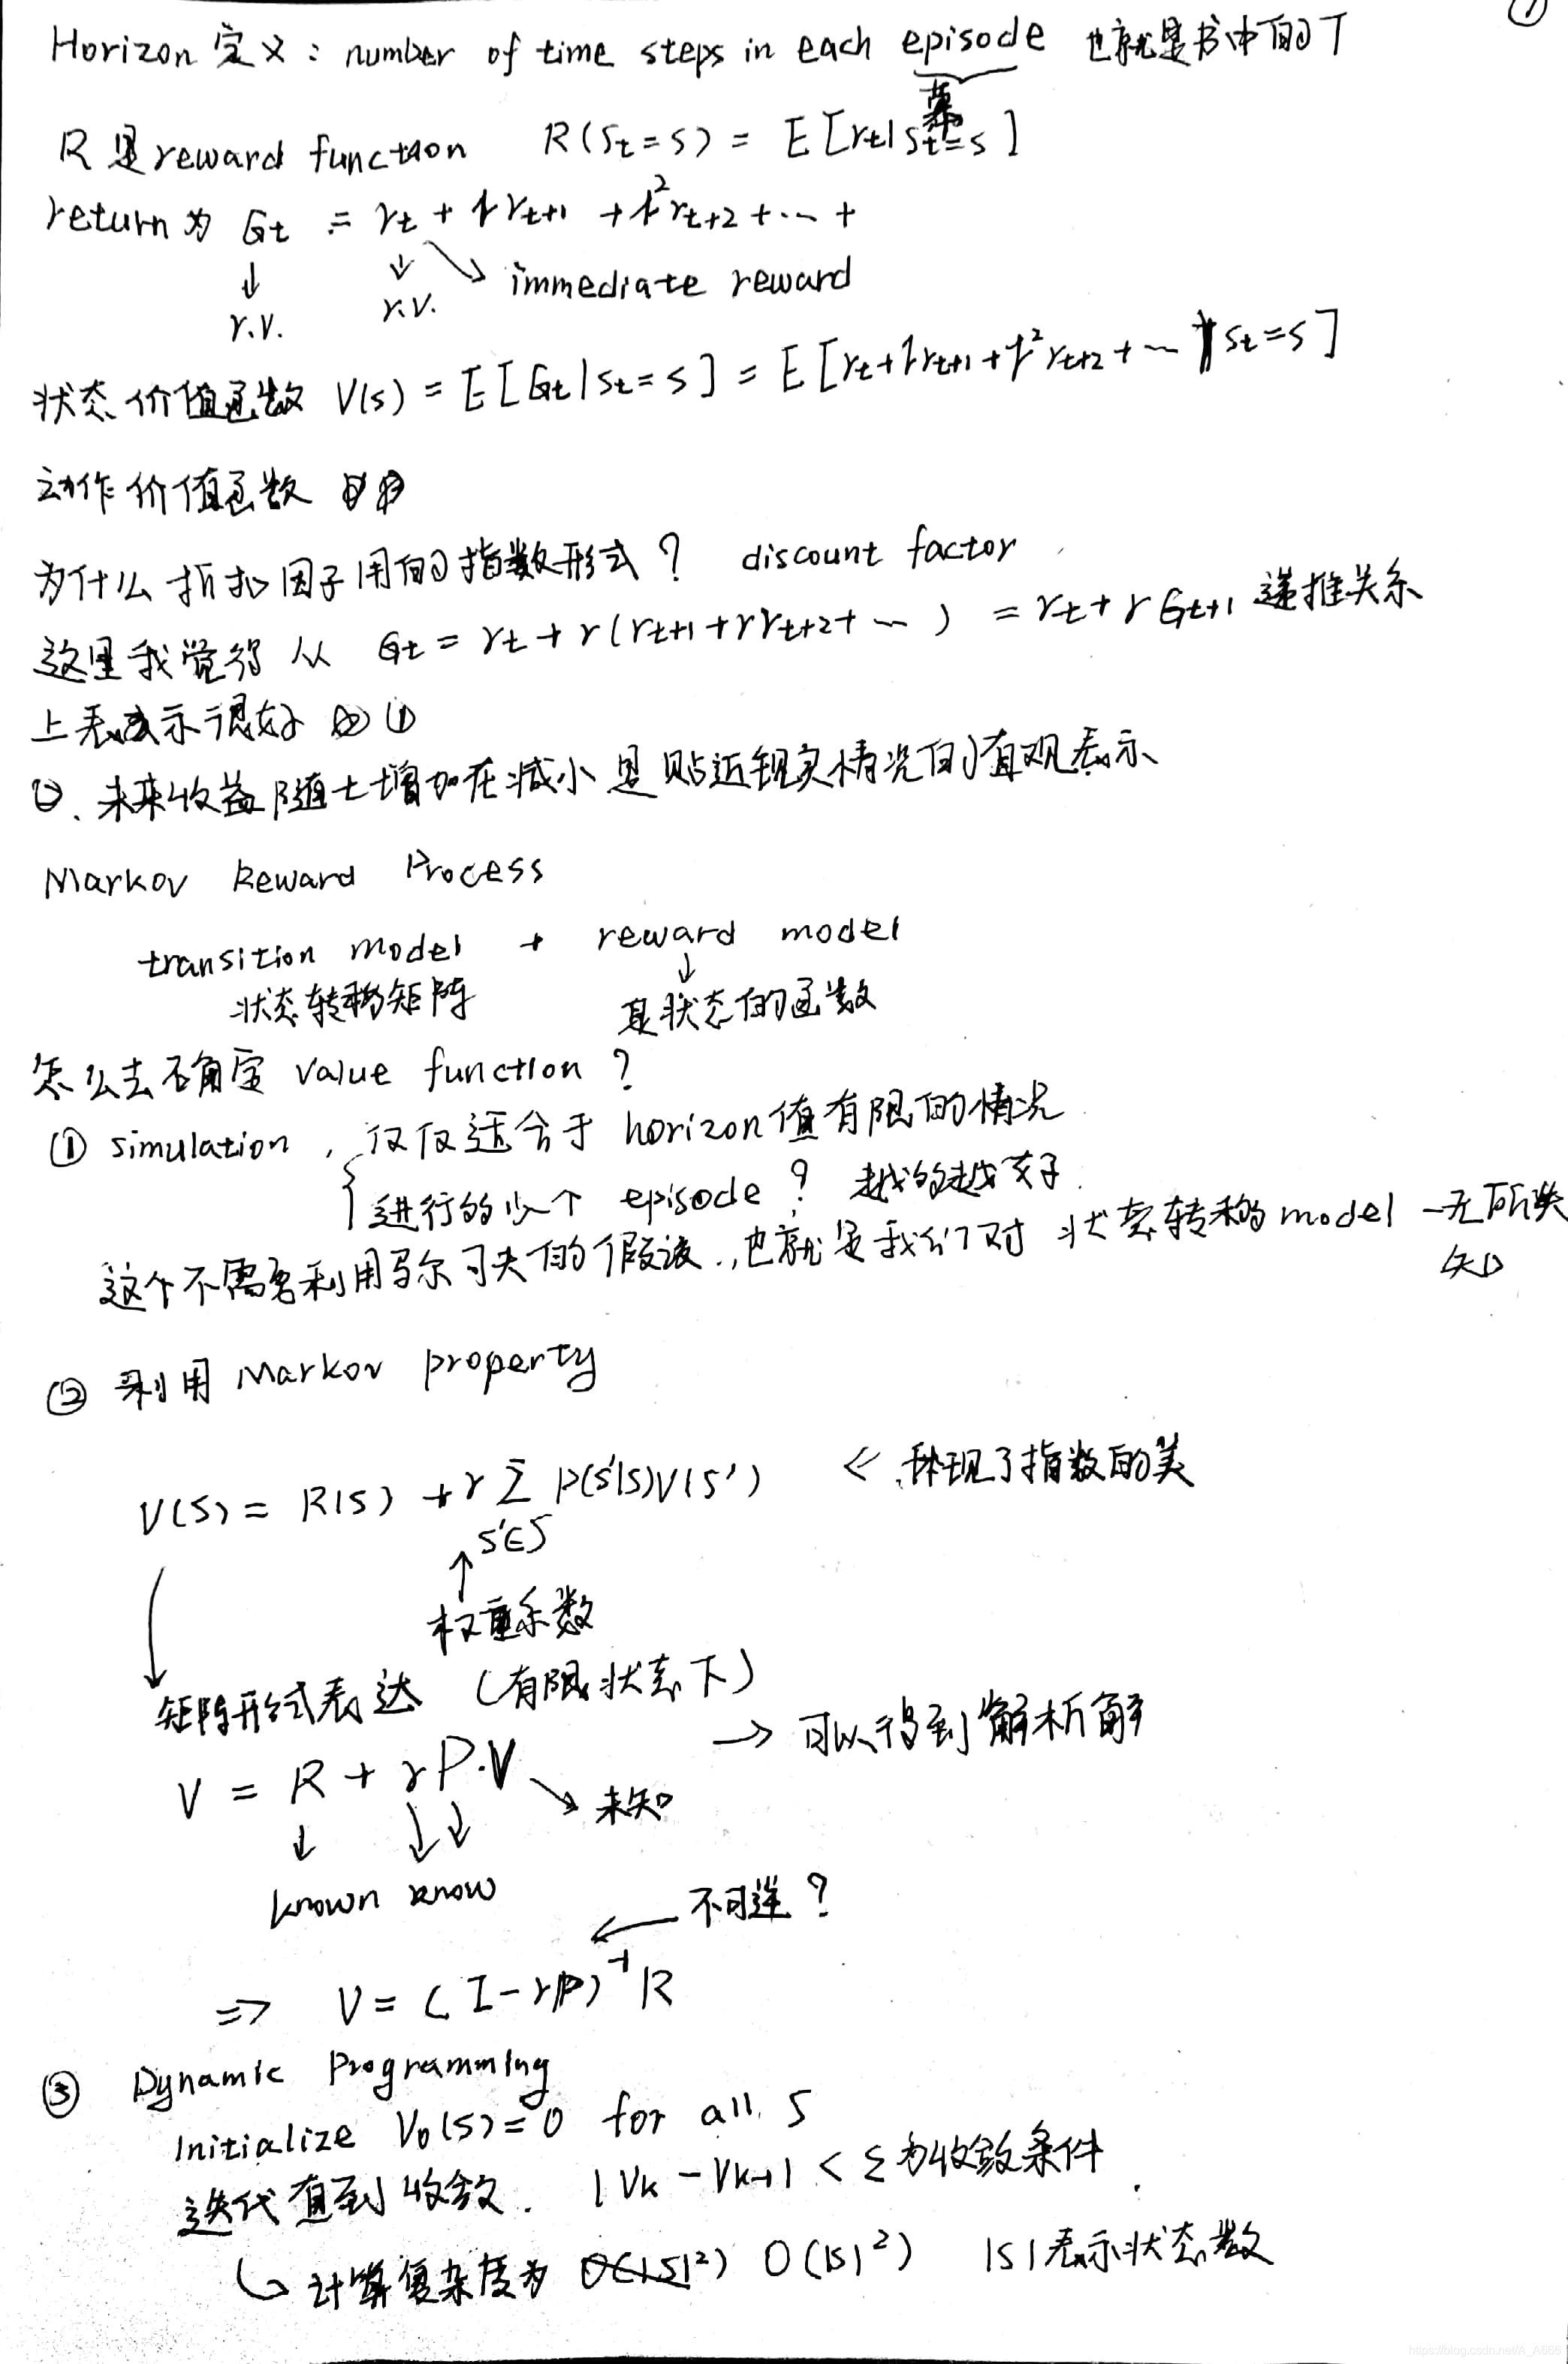 ①
Horizon 定义：number of time steps in each episode 也就是书中的T
幕
R 是 reward function R(St=s) = E[rt|St=s]
return 为 Gt = rt + γrt+1 + γ²rt+2 + ... +
↓ ↓ ↘ immediate reward
r.v. r.v.
状态价值函数 V(s) = E[Gt|St=s] = E[rt+γrt+1+γ²rt+2+... | St=s]
动作价值函数
为什么折扣因子用的指数形式？ discount factor
这里我觉得从 Gt = rt + r(rt+1+rrt+2+...) = rt + rGt+1 递推关系
上表示很好 ①
②. 未来收益随t增加在减小是贴近现实情况的直观表示
Markov Reward Process
transition model + reward model
↓
状态转移矩阵 是状态的函数
怎么去确定 value function ?
① simulation , 仅仅适合于 horizon 值有限的情况
进行多少个 episode ? 越多越好.
这个不需要利用马尔可夫的假设., 也就是我们对 状态转移的 model 一无所
知
② 利用 Markov property
V(s) = R(s) + r Σ P(s'|s)V(s') ← 体现了指数的美
s'∈S
↑
权重系数
矩阵形式表达 (有限状态下)
→ 可以得到解析解
V = R + rP·V ↘ 未知
↓ ↓↓
known know
← 不可逆？
⇒ V = (I-rP)⁻¹R
③ Dynamic Programming
Initialize V0(s)=0 for all s
迭代直到收敛. |Vk - Vk-1| < ε 为收敛条件.
↳ 计算复杂度为 O(|S|²) O(|S|²) |S|表示状态数
https://blog.csdn.net/A_A666